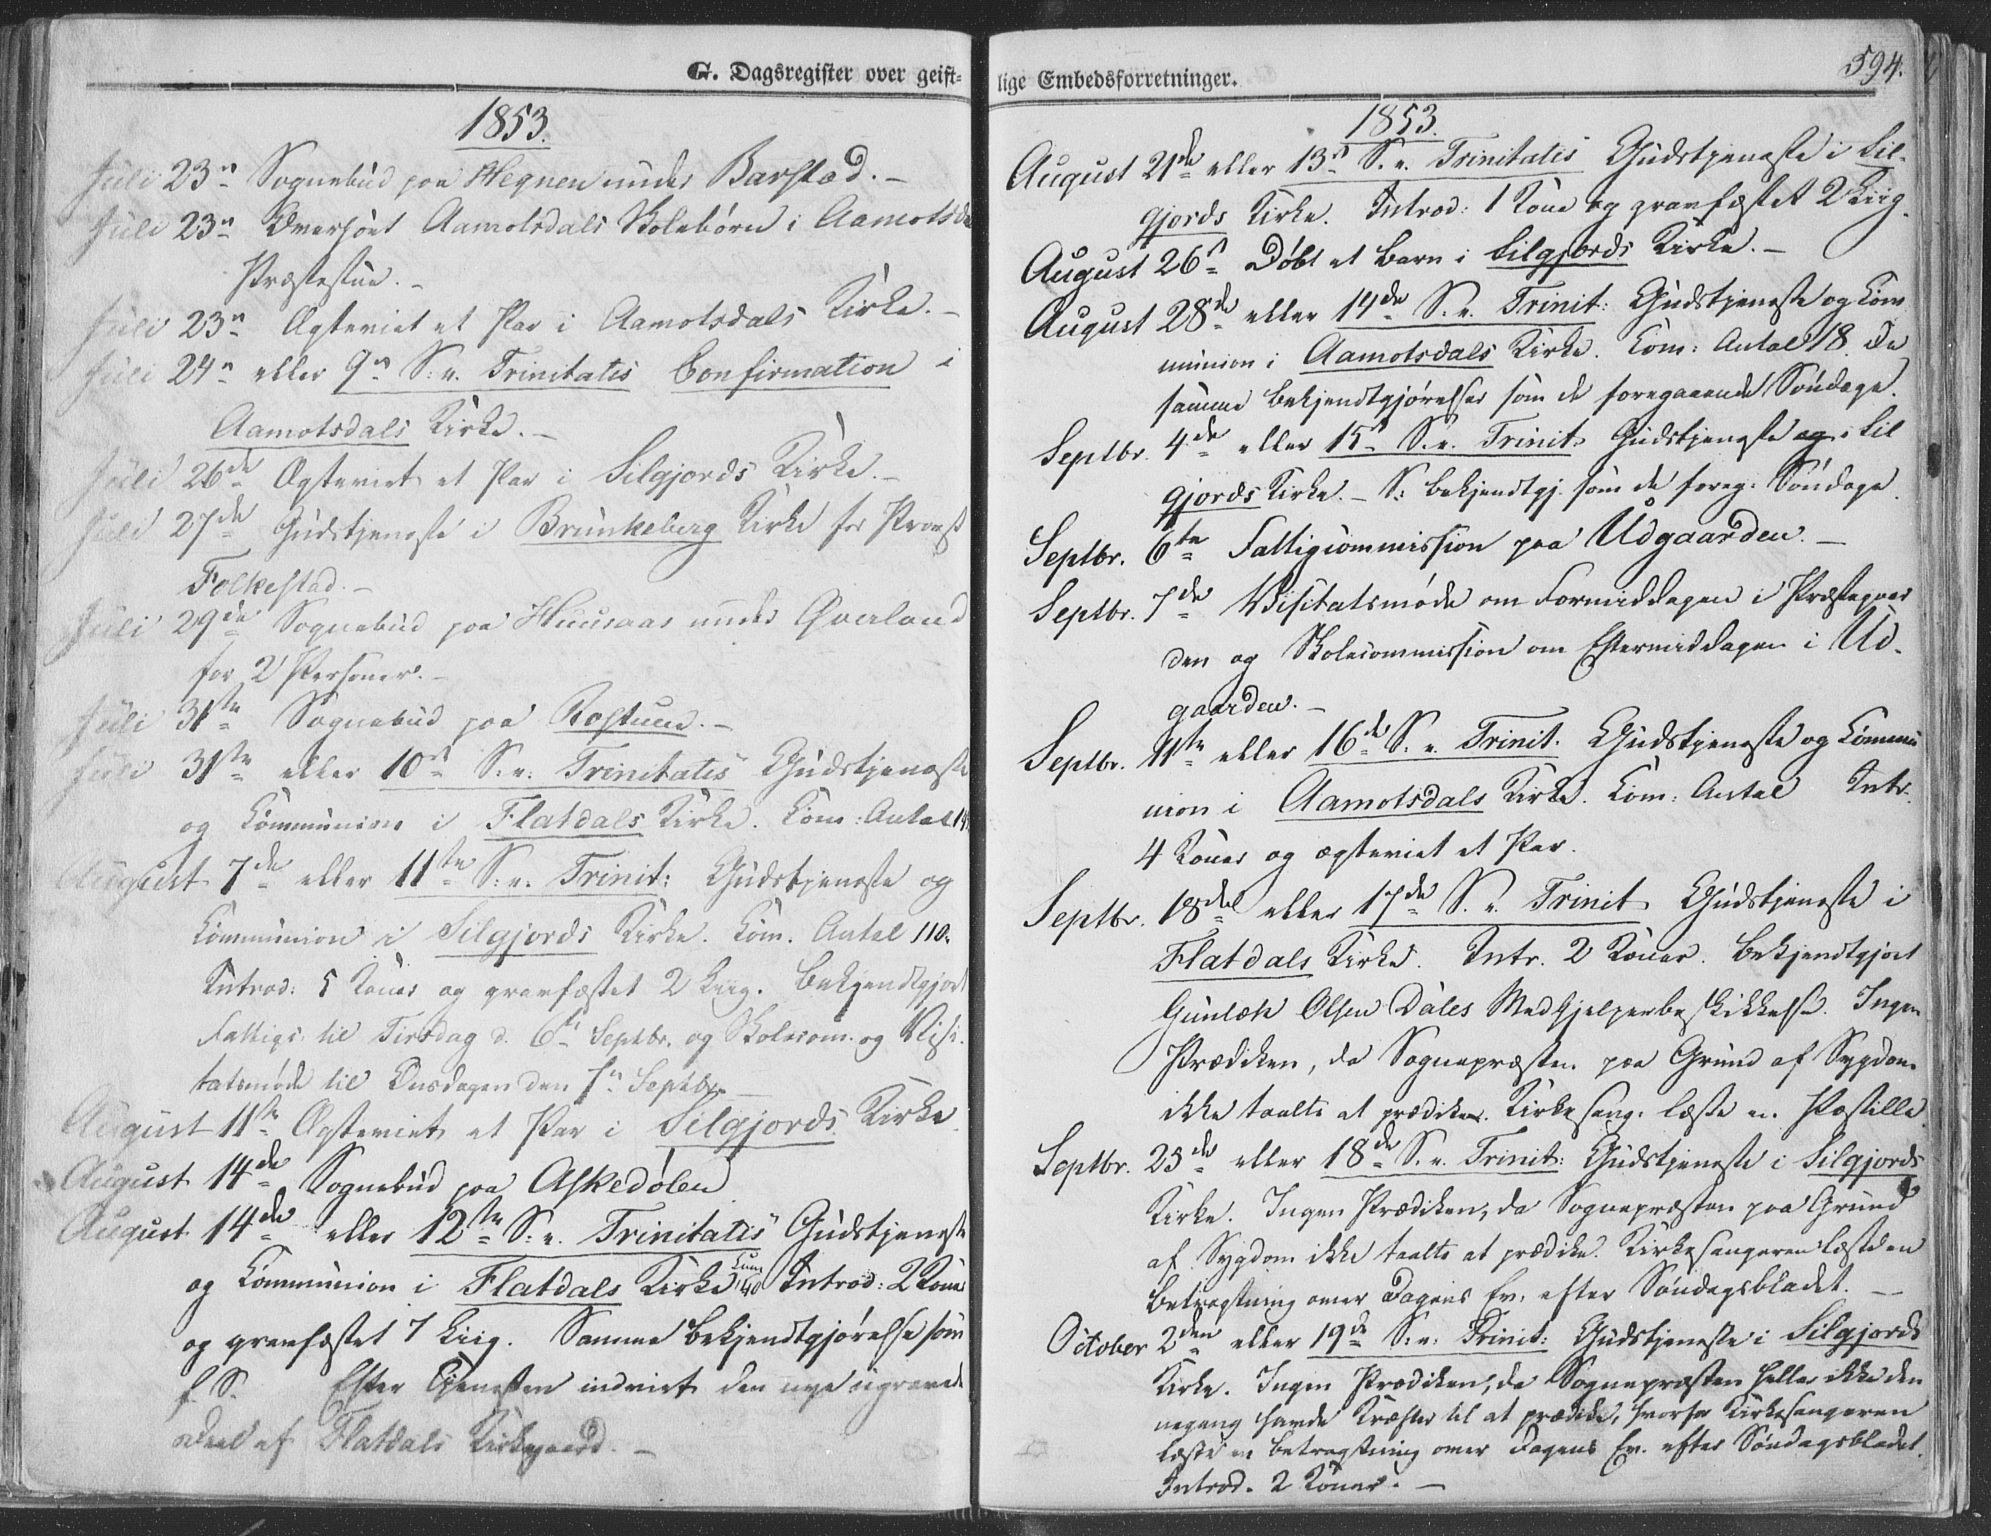 G. Dagsregister over geist-
1853.
Juli 23n Sognebud paa Hegnen under Barstad. -
Juli 23n Overhört Aamotsdals Skolebörn i Aamotsda
Præstestue. -
Juli 23n Egteviet et Par i Aamotsdals Kirke. -
Juli 24n eller 9n S: e. Trinitatis Confirmation i
Aamotsdals Kirke. -
Juli 26de Egteviet et Par i Silgjords Kirke. -
Juli 27de Gudstjeneste i Brunkeberg Kirke for Provst
Folkestad. -
Juli 29de Sognebud paa Huusaas under Qverland
for 2 Personer. -
Juli 31te Sognebud paa Rostuen. -
Juli 31te eller 10n S. e. Trinitatis Gudstjeneste
og Communion i Flatdals Kirke. Com: Antal
August 7de eller 11te S: e. Trinit: Gudstjeneste og
Communion i Silgjords Kirke. Com. Antal 110.
Introd: 5 Koner og gravfæstet 2 Liig. Bekjendtgjort
Fattigs. til Tirsdag d. 6te Septbr. og Skolecom. og Visi-
tatsmöde til Onsdagen den 7n Septbr. -
August 11te Egteviet et Par i Silgjords Kirke.
August 14de Sognebud paa Askedölen
August 14de eller 12te S: e. Trinitatis Gudstjeneste
og Communion i Flatdals Kirke Com 140 Introd: 2 Kone
og gravfæstet 7 Liig. Samme Bekjendtgjörelse som
f. S. Efter Tjenesten indviet den nye
Deel af Flatdals Kirkegaard. -
lige Embedsforretninger.
594.
1853.
August 21de eller 13n S. e. Trinitatis Gudstjeneste i Sil-
gjords Kirke. Introd: 1 Kone og gravfæstet 2 Liig.
August 26n Döbt et Barn i Silgjords Kirke. -
August 28de eller 14de S. e. Trinit: Gudstjeneste og Com
munion i Aamotsdals Kirke. Com: Antal 18. De
samme Bekjendtgjörelser som de foregaaende Söndage.
Septbr. 4de eller 15n S. e. Trinit. Gudstjeneste og i Sil
gjords Kirke. - S: Bekjendtgj. som de foreg. Söndage.
Septbr. 6te Fattigcommission paa Udgaarden. -
Septbr. 7de Visitatsmöde om Formiddagen i Præstegaar
den og Skolecommission om Eftermiddagen i Ud-
gaarden. -
Septbr. 11te eller 16de S. e. Trinit. Gudstjeneste og Commu
nion i Aamotsdals Kirke. Com: Antal Intr.
4 Koner og egteviet et Par.
Septbr. 18de eller 17de S. e. Trinit Gudstjeneste i
Flatdals Kirke. Intr. 2 Koner. Bekjendtgjort
Gunleik Olsen Dales Medhjelperbeskikkelse. Ingen
Prædiken, da Sognepræsten paa Grund af Sygdom
ikke taalte at prædike. Kirkesang. læste en Postille.
Septbr. 25de eller 18de S. e. Trinit: Gudstjeneste i Silgjords
Kirke. Ingen Prædiken, da Sognepræsten paa Grund
af Sygdom ikke taalte at prædike. Kirkesangeren læste en
Betragtning over Dagens Ev. efter Söndagsbladet. -
October 2den eller 19de S. e. Trinit: Gudstjeneste i Silgjords
Kirke. Ingen Prædiken, da Sognepræsten heller ikke den
negang havde Kræfter til at prædike, hvorfor Kirkesangeren
læste en Betragtning over Dagens Ev. efter Söndagsbladet.
Introd. 2 Koner. -